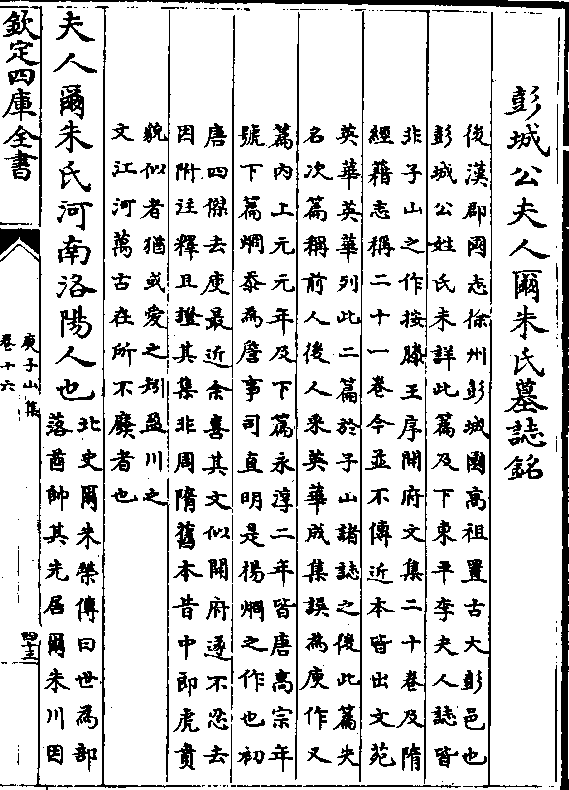 彭城公夫人爾朱氏墓誌銘
後漢郡國志徐州彭城國高祖置古大彭邑也
彭城公姓氏未詳此篇及下東平李夫人誌皆
非子山之作按滕王序開府文集二十卷及隋
經籍志稱二十一卷今並不傳近本皆出文苑
英華英華列此二篇於子山諸誌之後此篇失
名次篇稱前人後人采英華成集誤為庾作又
篇內上元元年及下篇永淳二年皆唐高宗年
號下篇烱忝為詹事司直明是楊烱之作也初
唐四傑去庾最近余喜其文似開府遂不忍去
因附注釋且證其集非周隋舊本昔中郎虎賁
貌似者猶或愛之矧盈川之
文江河萬古在所不廢者也
夫人爾朱氏河南洛陽人也
北史爾朱榮傳曰世為部
落酋帥其先居爾朱川因
欽定四庫全書
庾子山集
卷十六
四十三